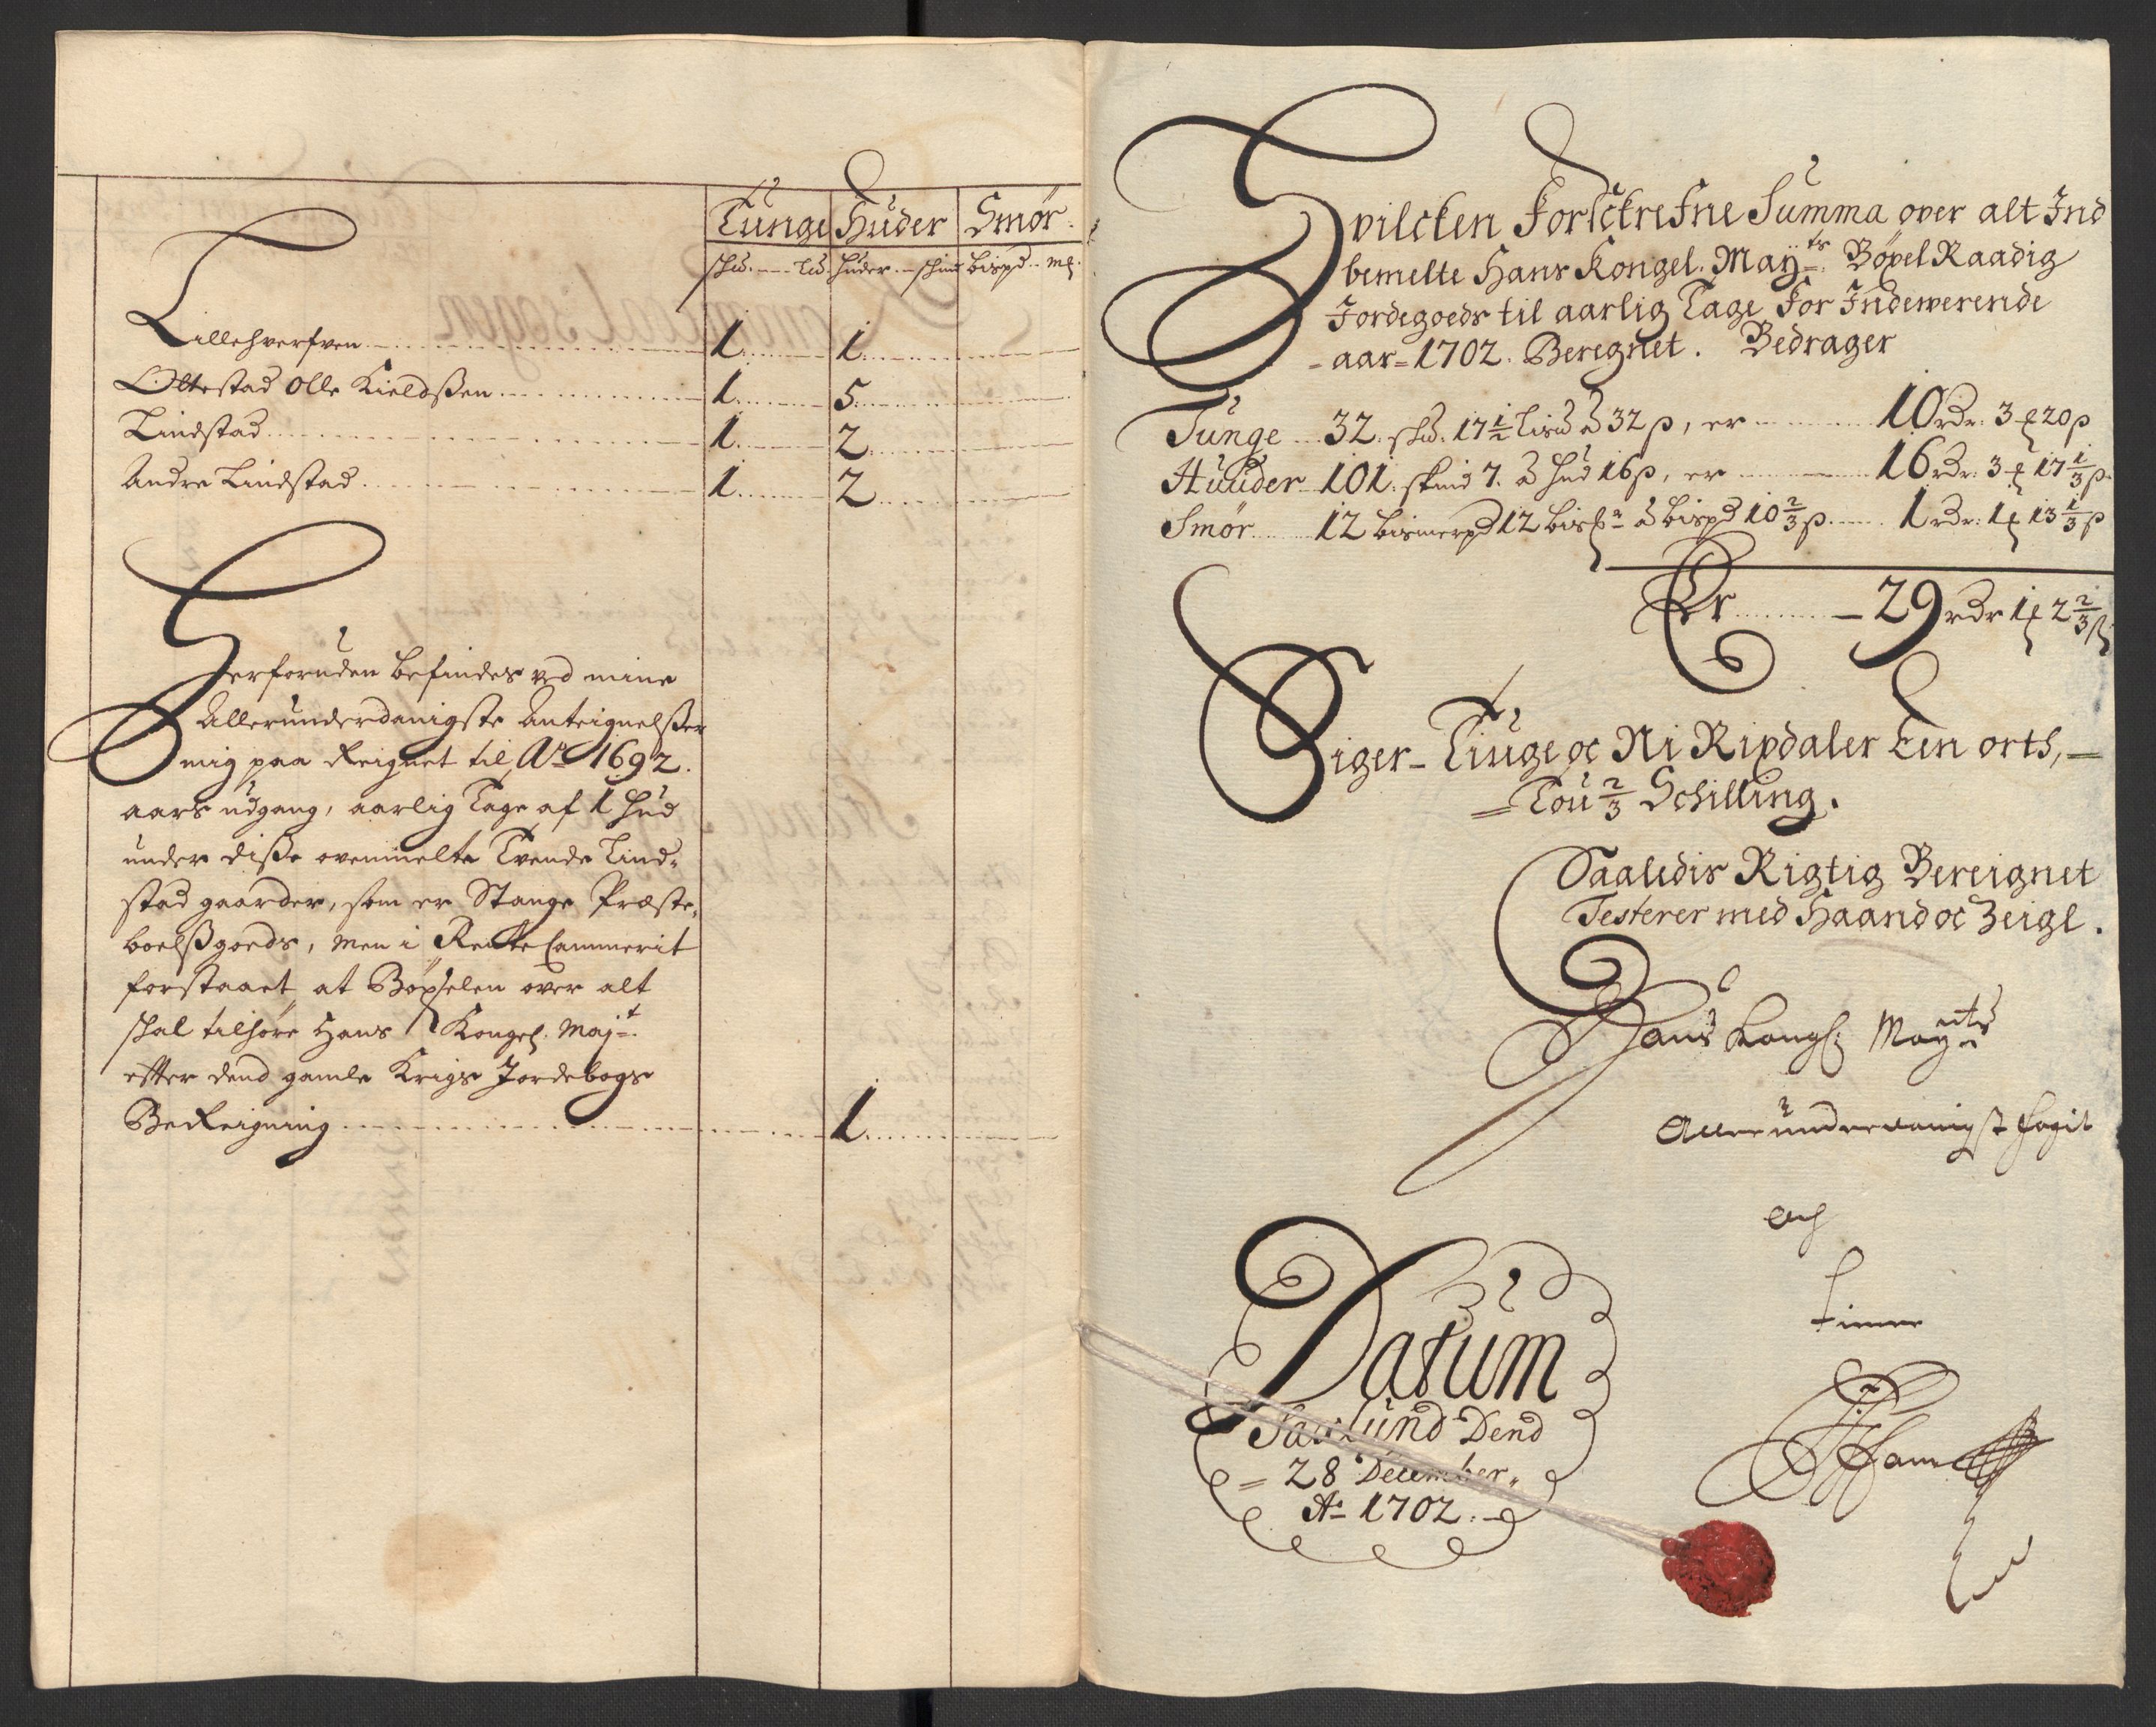 Tunge Huder Smör
skud. Lıd huder. skind bispd. mk.
Lillehverfven 1 1
Ottestad Olle Kieldßen 1 5
Lindstad 1 2
Andre Lindstad 1 2
Herforuden befindes ved mine
Allerunderdanigste Anteignelßer
mig paa Reignet til Ao 1692.
aars udgang, aarlig Tage af 1 hud
under diße ovenmelte Tvende Lind-
stad gaarder, som er Stange Præste-
boelßgoeds, men i Rente Cammerit
forstaaet at Böxselen over alt
skal tilhöre Hans Kongel. Mayt.
efter dend gamle Krigs Jordebogs
BeReigning 1
Hvilcken Forschrefne Summa over alt Ind
bemelte Hans Kongel. Mayts. Böxel Raadig
Jordegoeds til aarlig Tage For Indeverende
- aar - 1702. Beregnet. Bedrager
Tunge 32. skud. 17½ Lisud â 32 ß, er 10 rdr. 3 ƒ 20 ß
Huuder 101. skind 7. â hud 16 ß, er 16 rdr. 3 ƒ 17⅓ ß
Smör 12 bismerpd 12 bismkr â bispd 10⅔ ß 1 rdr. 1 ƒ 13⅓ ß
Er 29 rdr 1 ƒ 2⅔ ß
Siger - Tiuge oc Ni Rixdaler Een orth, -
= Tou ⅔ Schilling.
Saaledis Rigtig Bereignet
Testerer med Haand oc Zeigl.
Hans Kongl: Mayts
Allerunderdanigst fogit
och
tiener
Datum
Saulund Dend
= 28 December.
Ao 1702.